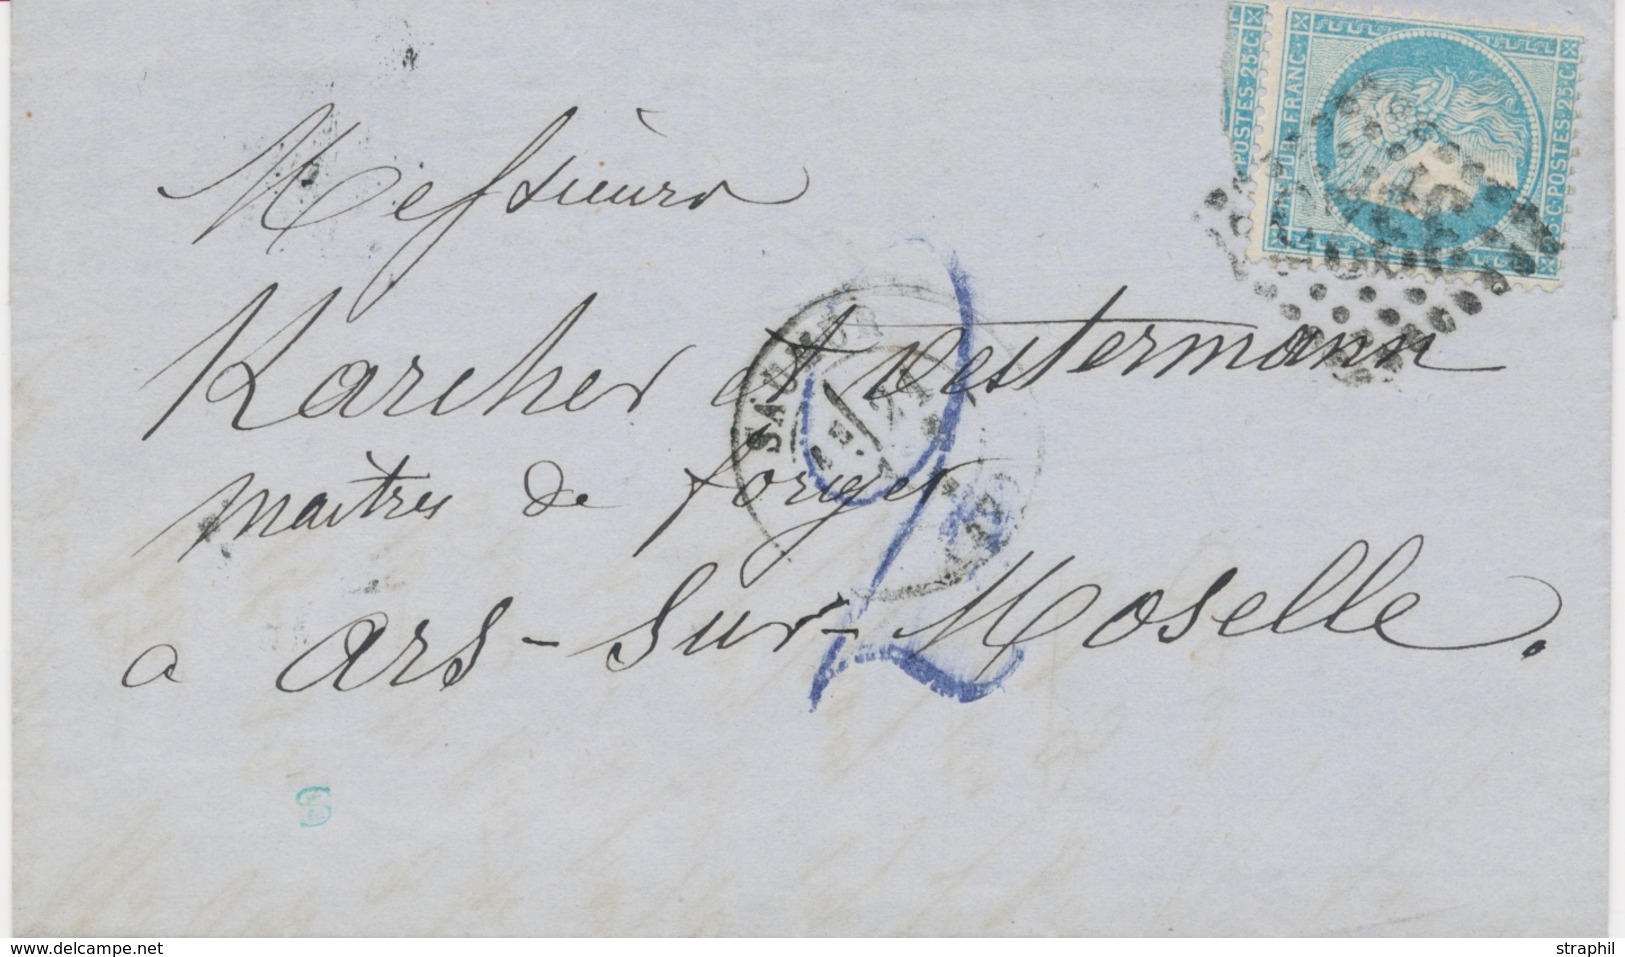 POSTES·25·C
REPUB FRANC
25·C·POSTES·25·C
Messieurs
Karcher et Westermann
maitres de forges
à ars-sur-Moselle.
SAUMUR
24
2
S
www.delcampe.net
straphil